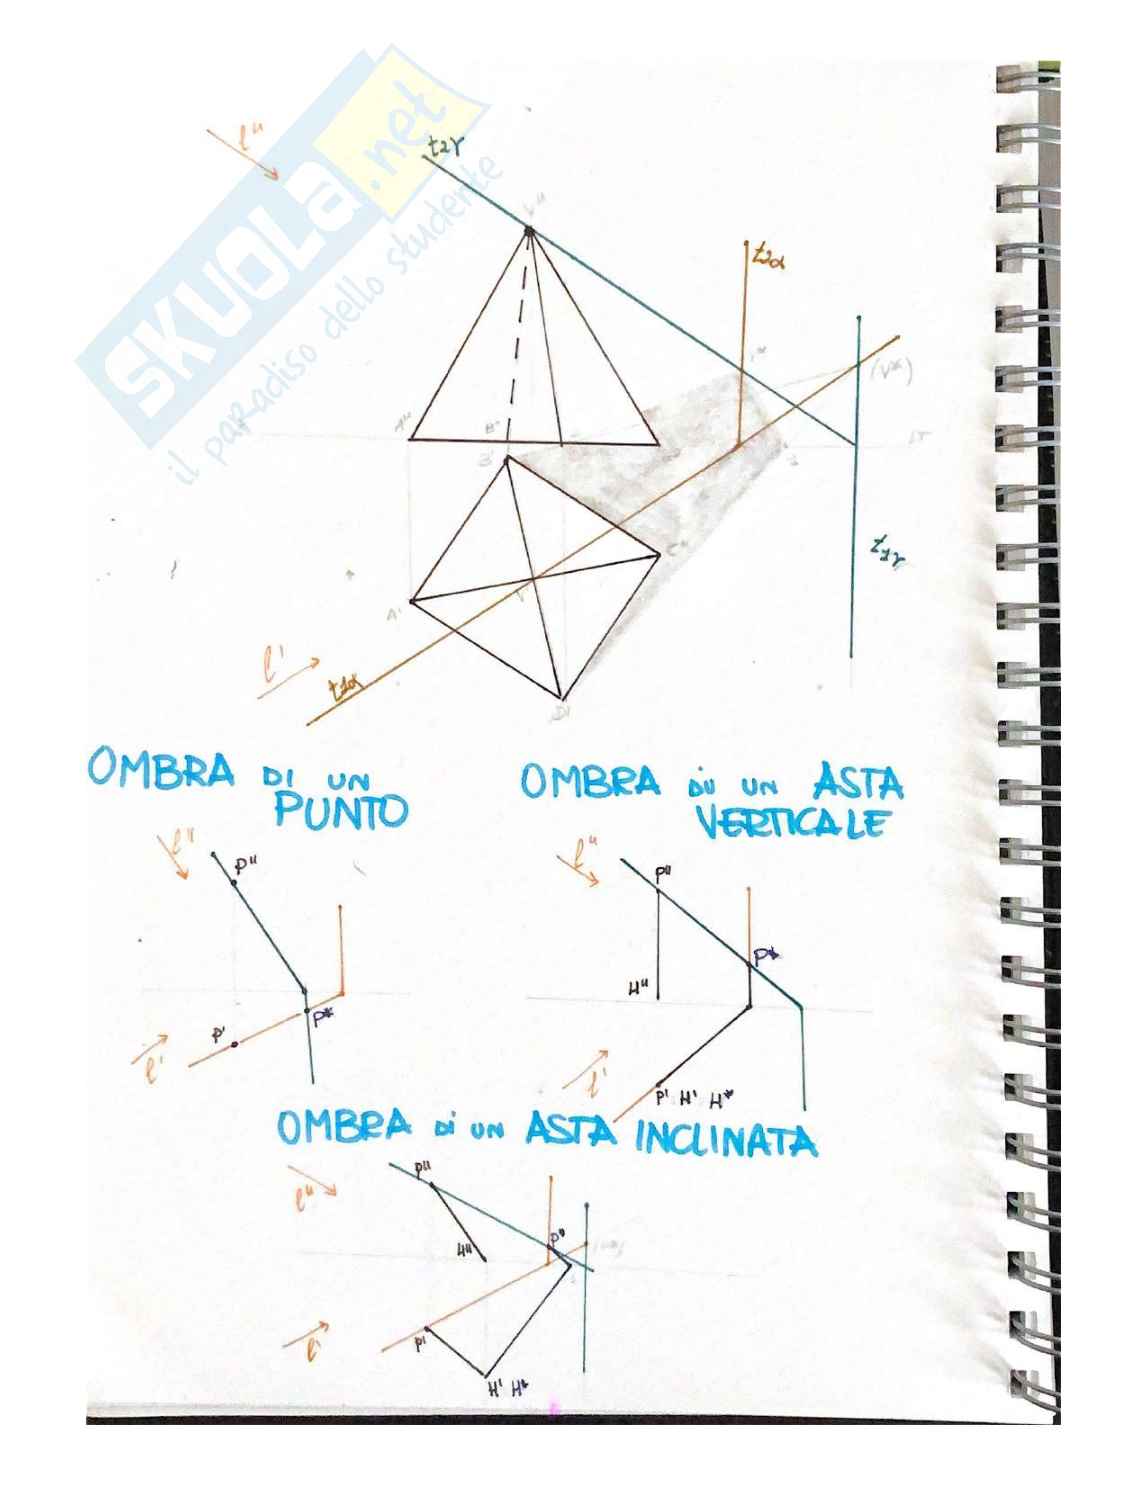 l"
t2γ
SKUOLA.net
il paradiso dello studente
V"
t2α
A"
B"
(V*)
LT
B'
C'
t1γ
A'
V'
l'
t1α
D'
OMBRA DI UN
PUNTO
OMBRA DI UN ASTA
VERTICALE
l"
P"
l"
P"
P*
H"
P'
P*
l'
l'
P' H' H*
OMBRA DI UN ASTA INCLINATA
l"
P"
H"
l'
P'
H' H*